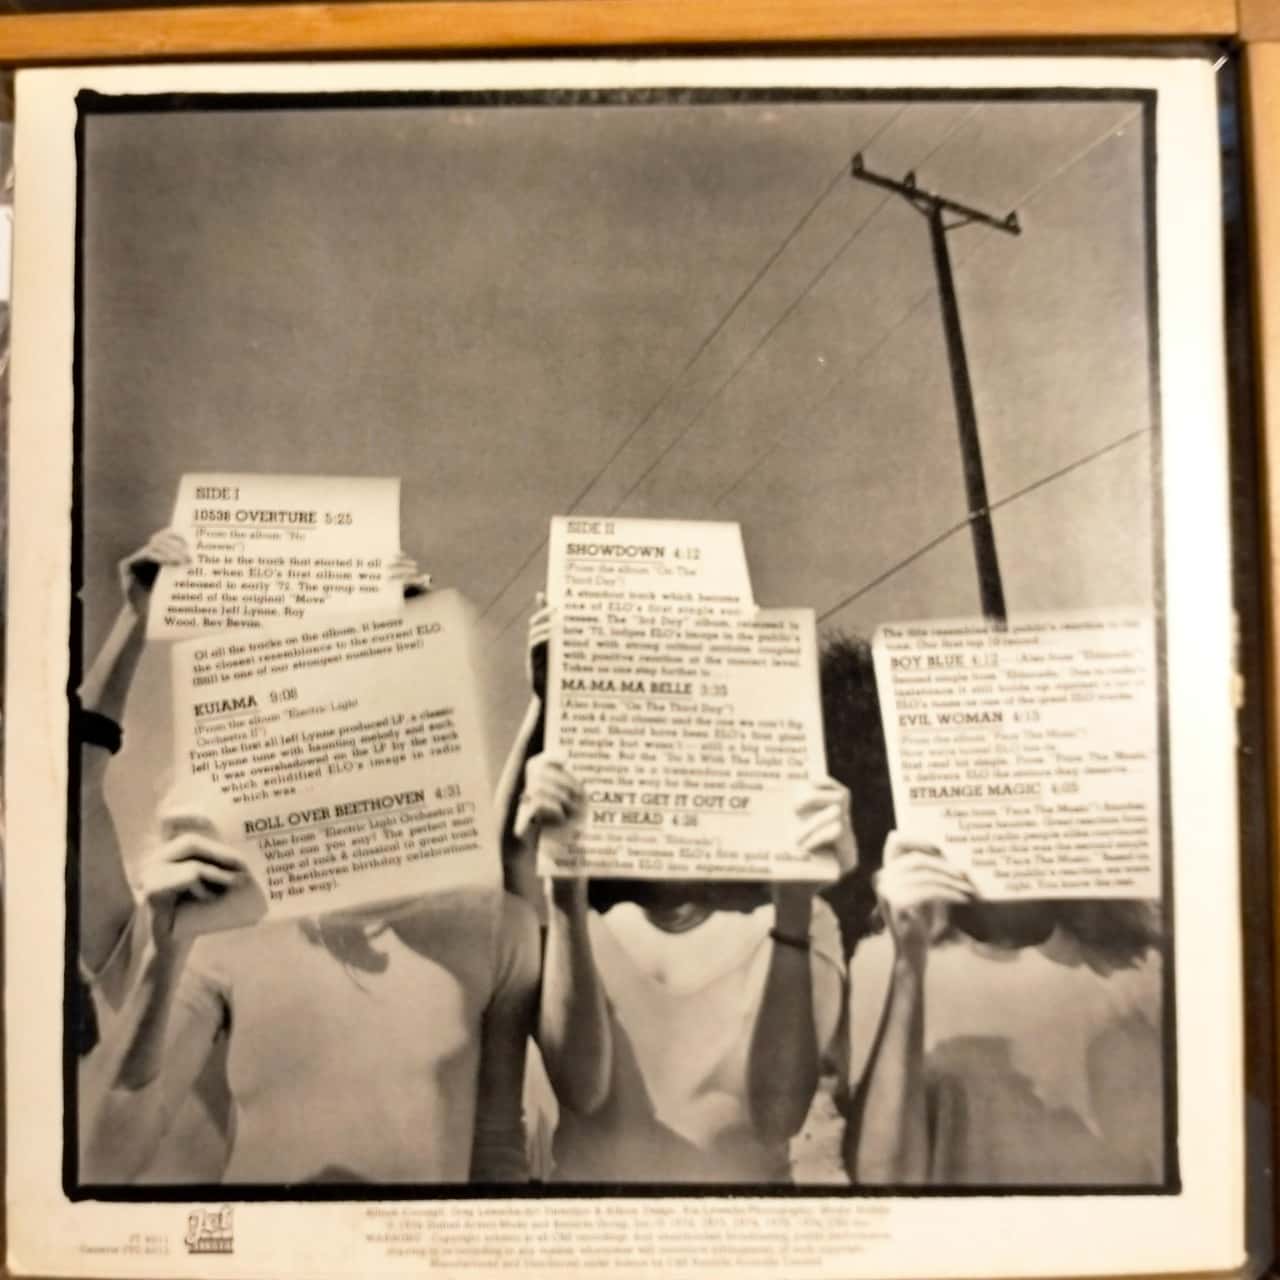 SIDE I
10538 OVERTURE 5:25
(From the album "No
Answer")
This is the track that started it all
off, when ELO's first album was
released in early '72. The group con-
sisted of the original "Move"
members Jeff Lynne, Roy
Wood, Bev Bevan.
Of all the tracks on the album, it bears
the closest resemblance to the current ELO.
(Still is one of our strongest numbers live!)
KUIAMA 9:08
(From the album "Electric Light
Orchestra II")
From the first all Jeff Lynne produced LP, a classic
Jeff Lynne tune with haunting melody and such.
It was overshadowed on the LP by the track
which solidified ELO's image in radio
which was ...
ROLL OVER BEETHOVEN 4:31
(Also from "Electric Light Orchestra II")
What can you say? The perfect mar-
riage of rock & classical (a great track
for Beethoven birthday celebrations,
by the way).
SIDE II
SHOWDOWN 4:12
(From the album "On The
Third Day")
A standout track which became
one of ELO's first single suc-
cesses. The "3rd Day" album, released in
late '73, lodges ELO's image in the public's
mind with strong critical acclaim coupled
with positive reaction at the concert level.
Takes us one step further to ...
MA-MA-MA BELLE 3:35
(Also from "On The Third Day")
A rock & roll classic and the one we can't fig-
ure out. Should have been ELO's first giant
hit single but wasn't — still a big concert
favorite. But the "Do It With The Light On"
campaign is a tremendous success and
paves the way for the next album ...
CAN'T GET IT OUT OF
MY HEAD 4:26
(From the album "Eldorado")
"Eldorado" becomes ELO's first gold album
and launches ELO into superstardom.
The title resembles the public's reaction to the
tune. Our first top 10 record ...
BOY BLUE 4:12 (Also from "Eldorado")
Second single from "Eldorado."
ELO's
EVIL WOMAN 4:13
(From the album "Face The Music")
first real hit single. From "Face The Music"
it delivers ELO the success they deserve ...
STRANGE MAGIC 4:05
(Also from "Face The Music") Another
Lynne favorite. Great reaction from
fans and radio people alike convinced
us that this was the second single
from "Face The Music." Based on
the public's reaction we were
right. You know the rest.
jet
RECORDS